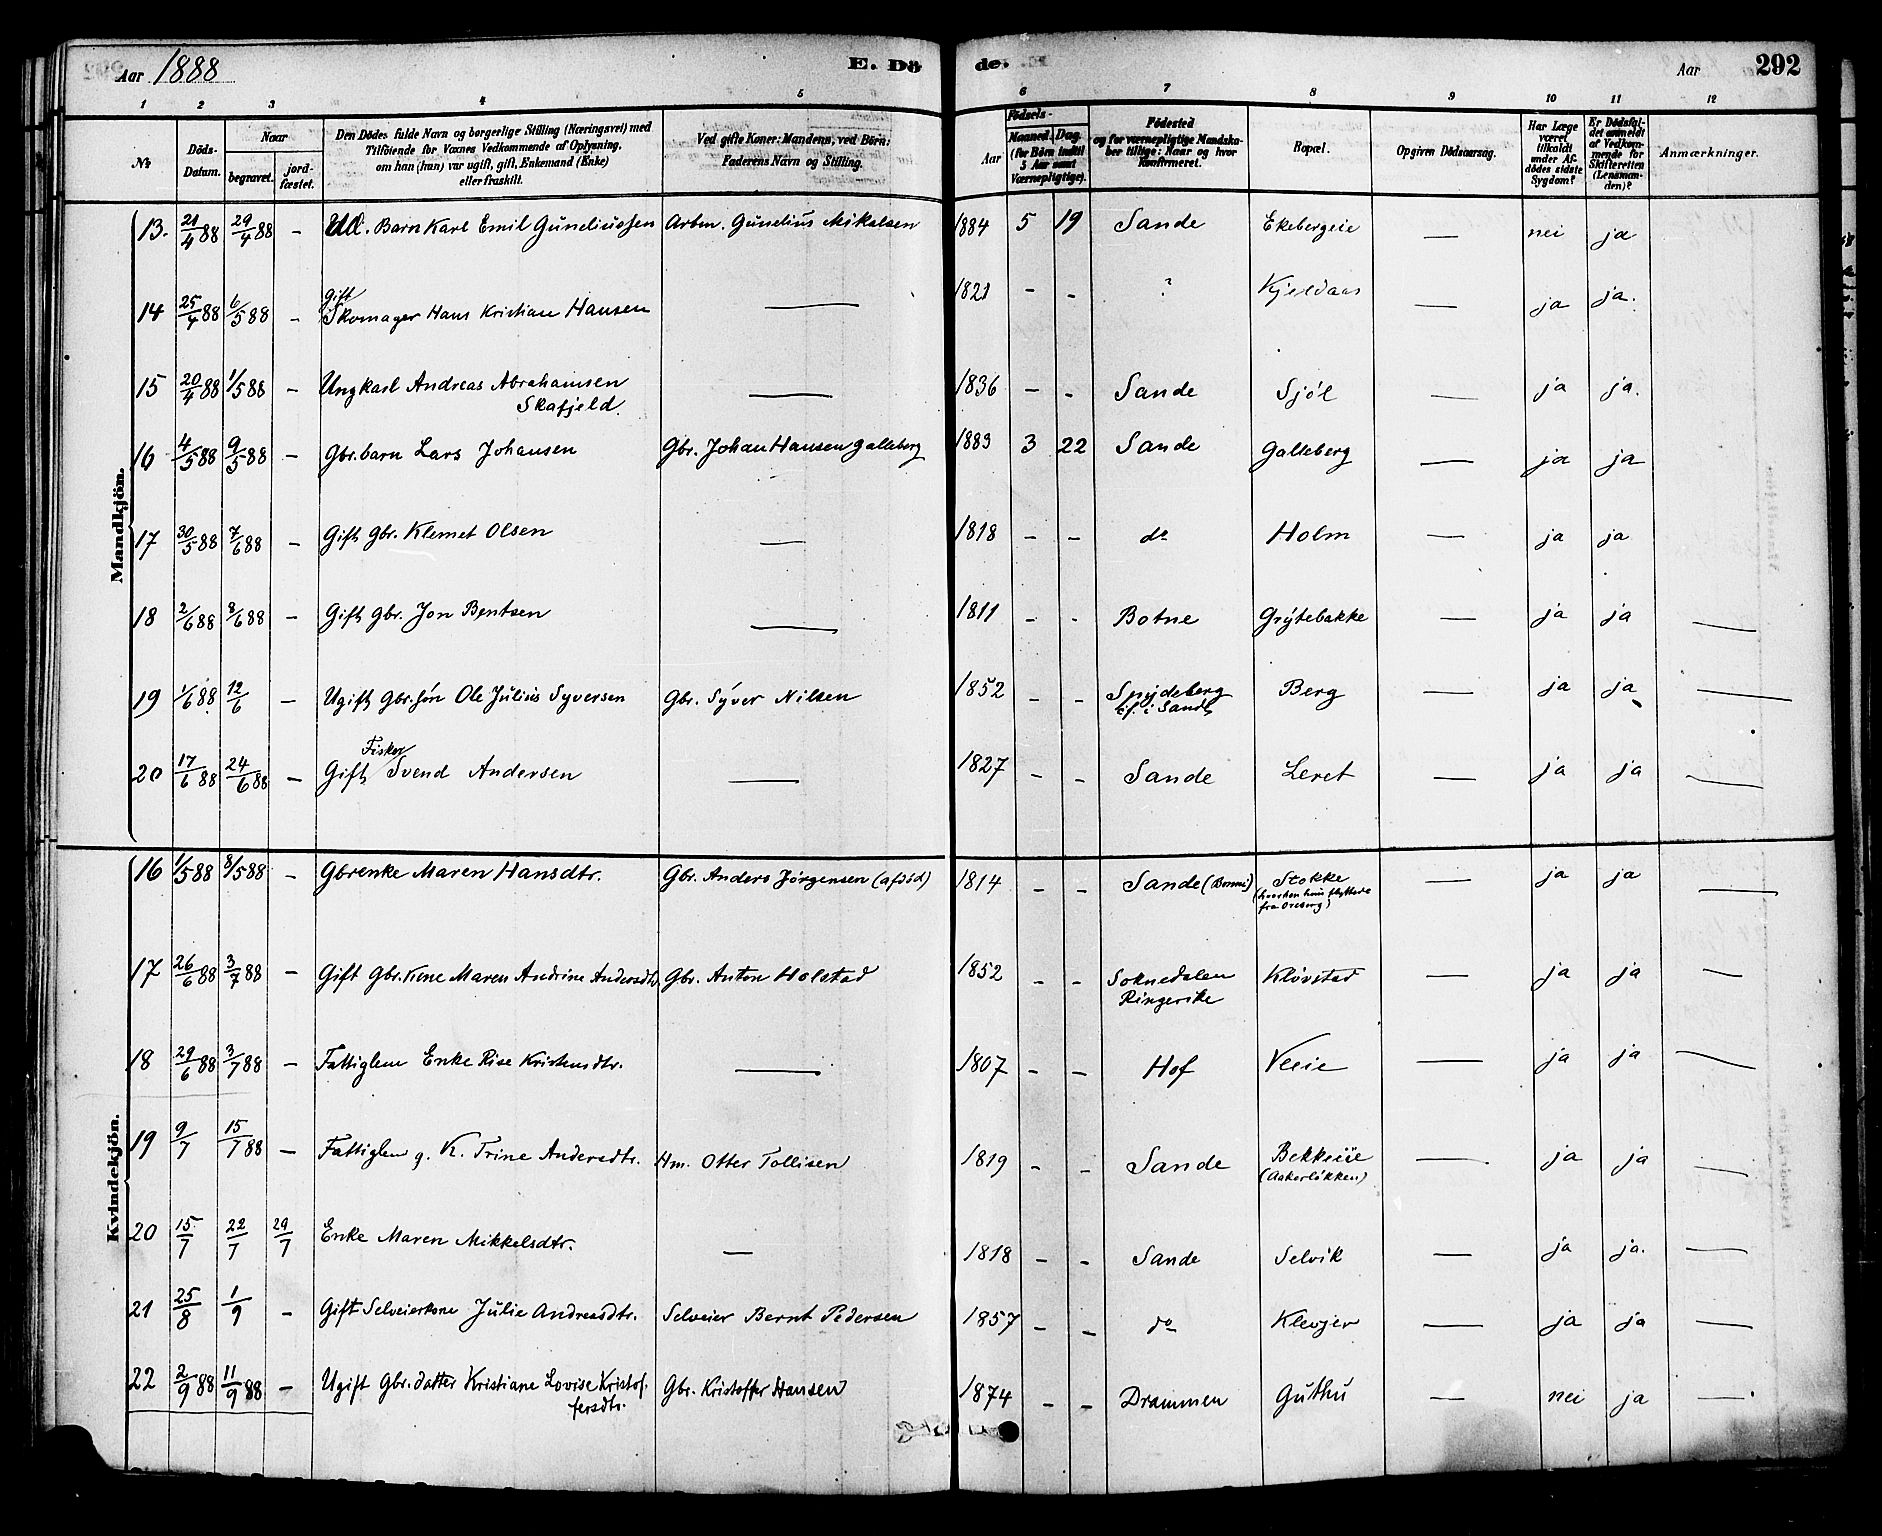 Aar 1888 E. Dö de. Aar 292
1 2 3 4 5 6 7 8 9 10 11 12
No Döds-Datum. Naar begravet. jord-fæstet. Den Dödes fulde Navn og borgerlige Stilling (Næringsvei) med Tilföiende for Voxnes Vedkommende af Oplysning, om han (hun) var ugift, gift, Enkemand (Enke) eller fraskilt. Ved gifte Koner: Mandens, ved Börn: Faderens Navn og Stilling. Födsels- Aar Maaned. Dag. (for Börn indtil 5 Aar samt Værnepligtige). Födested og for værnepligtige Mandska-ber tillige: Naar og hvor konfirmeret. Bopæl. Opgiven Dödsaarsag. Har Læge været tilkaldt under Af-dödes sidste Sygdom? Er Dödsfal-det anmeldt af Vedkom-mende for Skifteretten (Lensman-den)? Anmærkninger.
Mandkjön.
13. 21/4 88 29/4 88 - Barn Karl Emil Gundiussen Arbm. Gundius Mikalsen 1884 5 19 Sande Ekebergeie — nei ja
14 25/4 88 6/5 88 - Gift Skomager Hans Kristian Hansen — 1821 - - ? Kjeldaas — ja ja.
15 20/4 88 1/5 88 - Ungkarl Andreas Abrahamsen — 1836 - - Sande Sjöl — ja ja.
Skafjeld.
16 4/5 88 9/5 88 - Gbr.barn Lars Johansen Gbr. Johan Hansen Galleberg 1883 3 22 Sande Galleberg — ja ja
17 30/5 88 7/6 88 - Gift Gbr. Klemet Olsen — 1818 - - do Holm — ja ja
18 2/6 88 8/6 88 - Gift Gbr. Jon Bentsen — 1811 - - Botne Grytebakke — ja ja —
19 1/6 88. 12/6 - Ugift Gbr.sön Ole Julius Syversen Gbr. Syver Nilsen 1852 - - Spydeberg Berg ja ja —
i Sande
20 17/6 88 24/6 88 - Gift Fisker Svend Andersen — 1827 - - Sande Leret — ja ja —
Kvindekjön.
16 1/5 88 8/5 88 - Gbrenke Maren Hansdtr. Gbr. Anders Jörgensen (afdöd) 1814 - - Sande Stokke — ja ja —
(hvorhen hun flyttede
fra Oreberg)
17 26/6 88 3/7 88 - Gift Gbr. Kone Maren Andrine Andersdtr. Gbr. Anton Holstad 1852 - - Soknedalen Klövstad — ja ja —
Ringerike
18 29/6 88 3/7 88 - Fattiglem Enke Rise Kristensdtr. — 1807 - - Hof Veeie — ja ja —
19 9/7 15/7 88 - Fattiglem g. K. Trine Andersdtr. Hm. Otter Tollisen 1819 - - Sande Bekkeiie — ja ja —
(Aakerlökken)
20 15/7 22/7 29/7 Enke Maren Mikkelsdtr. — 1818 - - Sande Selvik — ja ja. —
21 25/8 1/9 - Gift Selveierkone Julie Andreasdtr. Selveier Bernt Pedersen 1857 - - do Klevjer — ja ja —
22 2/9 88 11/9 88 - Ugift Gbr. datter Kristiane Lovise Kristof- Gbr. Kristoffer Hansen 1874 - - Drammen Guthu — nei ja —
fersdtr.